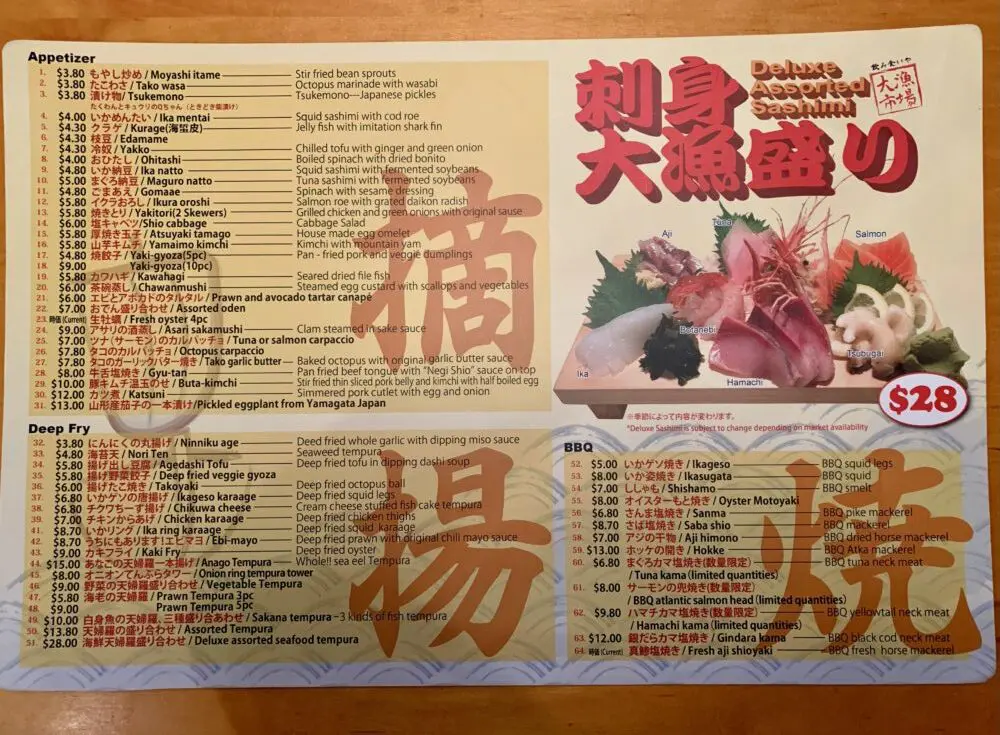 Appetizer
1. $3.80 もやし炒め / Moyashi itame Stir fried bean sprouts
2. $3.80 たこわさ / Tako wasa Octopus marinade with wasabi
3. $3.80 漬け物/ Tsukemono Tsukemono---Japanese pickles
たくわんとキュウリのQちゃん (ときどき柴漬け)
4. $4.00 いかめんたい / Ika mentai Squid sashimi with cod roe
5. $4.30 クラゲ / Kurage(海蜇皮) Jelly fish with imitation shark fin
6. $4.30 枝豆 / Edamame
7. $4.30 冷奴 / Yakko Chilled tofu with ginger and green onion
8. $4.00 おひたし / Ohitashi Boiled spinach with dried bonito
9. $4.80 いか納豆 / Ika natto Squid sashimi with fermented soybeans
10. $5.00 まぐろ納豆 / Maguro natto Tuna sashimi with fermented soybeans
11. $4.80 ごまあえ / Gomaae Spinach with sesame dressing
12. $5.80 イクラおろし / Ikura oroshi Salmon roe with grated daikon radish
13. $5.80 焼きとり / Yakitori(2 Skewers) Grilled chicken and green onions with original sauce
14. $6.00 塩キャベツ/Shio cabbage Cabbage Salad
15. $5.80 厚焼き玉子 / Atsuyaki tamago House made egg omelet
16. $5.80 山芋キムチ / Yamaimo kimchi Kimchi with mountain yam
17. $4.80 焼餃子/ Yaki-gyoza(5pc) Pan - fried pork and veggie dumplings
18. $9.00 Yaki-gyoza(10pc)
19. $5.80 カワハギ / Kawahagi Seared dried file fish
20. $6.00 茶碗蒸し / Chawanmushi Steamed egg custard with scallops and vegetables
21. $6.00 エビとアボカドのタルタル / Prawn and avocado tartar canapé
22. $7.00 おでん盛り合わせ / Assorted oden
23. 時価 (Current) 生牡蠣 / Fresh oyster 4pc
24. $9.00 アサリの酒蒸し / Asari sakamushi Clam steamed in sake sauce
25. $7.00 ツナ (サーモン)のカルパッチョ / Tuna or salmon carpaccio
26. $7.80 タコのカルパッチョ / Octopus carpaccio
27. $7.80 タコのガーリックバター焼き / Tako garlic butter Baked octopus with original garlic butter sauce
28. $8.00 牛舌塩焼き / Gyu-tan Pan fried beef tongue with "Negi Shio" sauce on top
29. $10.00 豚キムチ温玉のせ / Buta-kimchi Stir fried thin sliced pork belly and kimchi with half boiled egg
30. $12.00 カツ煮 / Katsuni Simmered pork cutlet with egg and onion
31. $13.00 山形産茄子の一本漬け/Pickled eggplant from Yamagata Japan
摘
Deep Fry
32. $3.80 にんにくの丸揚げ / Ninniku age Deed fried whole garlic with dipping miso sauce
33. $4.80 海苔天 / Nori Ten Seaweed tempura
34. $5.80 揚げ出し豆腐 / Agedashi Tofu Deep fried tofu in dipping dashi soup
35. $5.80 揚げ野菜餃子 / Deep fried veggie gyoza
36. $6.00 揚げたこ焼き / Takoyaki Deep fried octopus ball
37. $6.80 いかゲソの唐揚げ / Ikageso karaage Deep fried squid legs
38. $6.80 チクワちーず揚げ / Chikuwa cheese Cream cheese stuffed fish cake tempura
39. $7.00 チキンからあげ / Chicken karaage Deep fried chicken thighs
41. $8.70 いかリング / Ika ring karaage Deep fried squid karaage
42. $8.70 うちにもあります!エビマヨ / Ebi-mayo Deep fried prawn with original chili mayo sauce
43. $9.00 カキフライ / Kaki Fry Deep fried oyster
44. $15.00 あなごの天婦羅一本揚げ / Anago Tempura Whole!! sea eel Tempura
45. $8.00 オニオンてんぷらタワー / Onion ring tempura tower
46. $9.00 野菜の天婦羅盛り合わせ / Vegetable Tempura
47. $5.80 海老の天婦羅 / Prawn Tempura 3pc
48. $9.00 Prawn Tempura 5pc
49. $10.00 白身魚の天婦羅、三種盛り合あわせ / Sakana tempura 3 kinds of fish tempura
50. $13.80 天婦羅の盛り合わせ / Assorted Tempura
51. $28.00 海鮮天婦羅盛り合わせ / Deluxe assorted seafood tempura
揚
刺身
大漁盛り
Deluxe
Assorted
Sashimi
飲み食いや
大漁
市場
Aji
Tuna
Salmon
Botanebi
Tsubugai
Ika
Hamachi
$28
※季節によって内容が変わります。
*Deluxe Sashimi is subject to change depending on market availability
BBQ
52. $5.00 いかゲソ焼き / Ikageso BBQ squid legs
53. $8.00 いか姿焼き / Ikasugata BBQ squid
54. $7.00 ししゃも / Shishamo BBQ smelt
55. $8.00 オイスターもと焼き / Oyster Motoyaki
56. $6.80 さんま塩焼き / Sanma BBQ pike mackerel
57. $8.70 さば塩焼き / Saba shio BBQ mackerel
58. $7.00 アジの干物 / Aji himono BBQ dried horse mackerel
59. $13.00 ホッケの開き / Hokke BBQ Atka mackerel
60. $6.80 まぐろカマ塩焼き(数量限定) BBQ tuna neck meat
/ Tuna kama (limited quantities)
61. $8.00 サーモンの兜焼き(数量限定)
/ BBQ atlantic salmon head (limited quantities)
62. $9.80 ハマチカマ塩焼き(数量限定) BBQ yellowtail neck meat
/ Hamachi kama (limited quantities)
63. $12.00 銀だらカマ塩焼き / Gindara kama BBQ black cod neck meat
64. 時価 (Current) 真鯵塩焼き / Fresh aji shioyaki BBQ fresh horse mackerel
焼